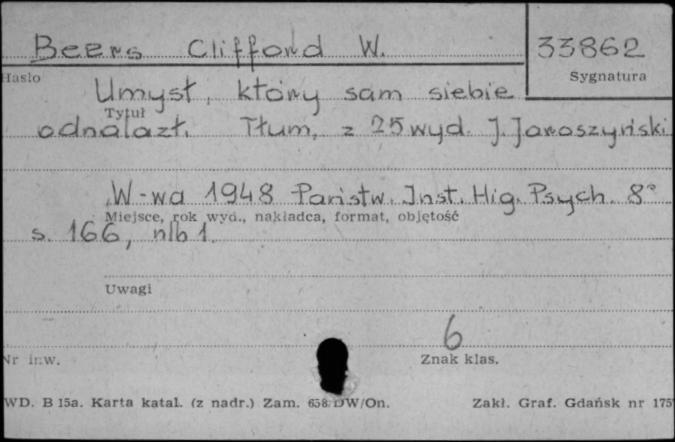 Beers Clifford W. 33862
Hasło Sygnatura
Umysł, który sam siebie
Tytuł
odnalazł. Tłum. z 25 wyd. J. Jaroszyński
W-wa 1948 Państw. Inst. Hig. Psych. 8°
Miejsce, rok wyd., nakładca, format, objętość
s. 166, nlb 1.
Uwagi
6
Nr inw. Znak klas.
WD. B 15a. Karta katal. (z nadr.) Zam. 658/DW/On. Zakł. Graf. Gdańsk nr 175